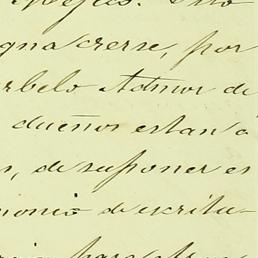 gna crerse, por
rbelo Admor de
dueños estan a
, de suponer es
monio de escritu-